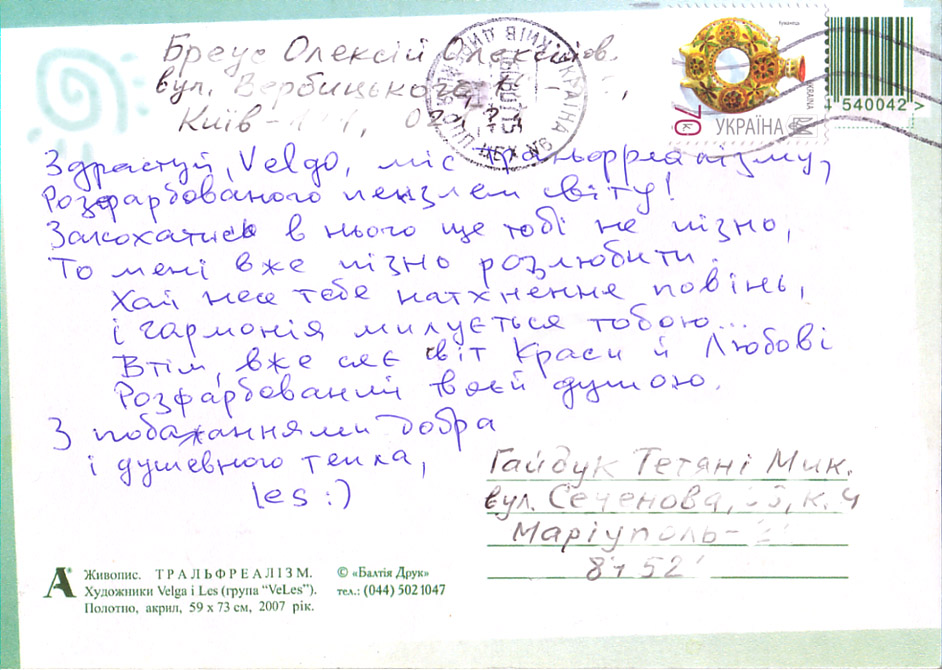 Бреус Олексій Олексійов.
вул. Вербицького
Київ-
УКРАЇНА
70 к
УКРАЇНА
UKRAINE
540042
Здрастуй, Velgo, міс
Розфарбованого пензлем світу!
Закохатись в нього ще тобі не пізно,
То мені вже пізно розлюбити.
Хай несе тебе натхнення повінь,
і гармонія милується тобою...
Втім, вже сяє світ Краси й Любові
Розфарбований твоєй душою.
З побажаннями добра
і душевного тепла,
les :)
Гайдук Тетяні Мик.
вул. Сеченова, к. 4
Маріуполь-
Живопис. ТРАЛЬФРЕАЛІЗМ.
Художники Velga i Les (група “VeLes”).
Полотно, акрил, 59 x 73 см, 2007 рік.
© «Балтія Друк»
тел.: (044) 502 1047